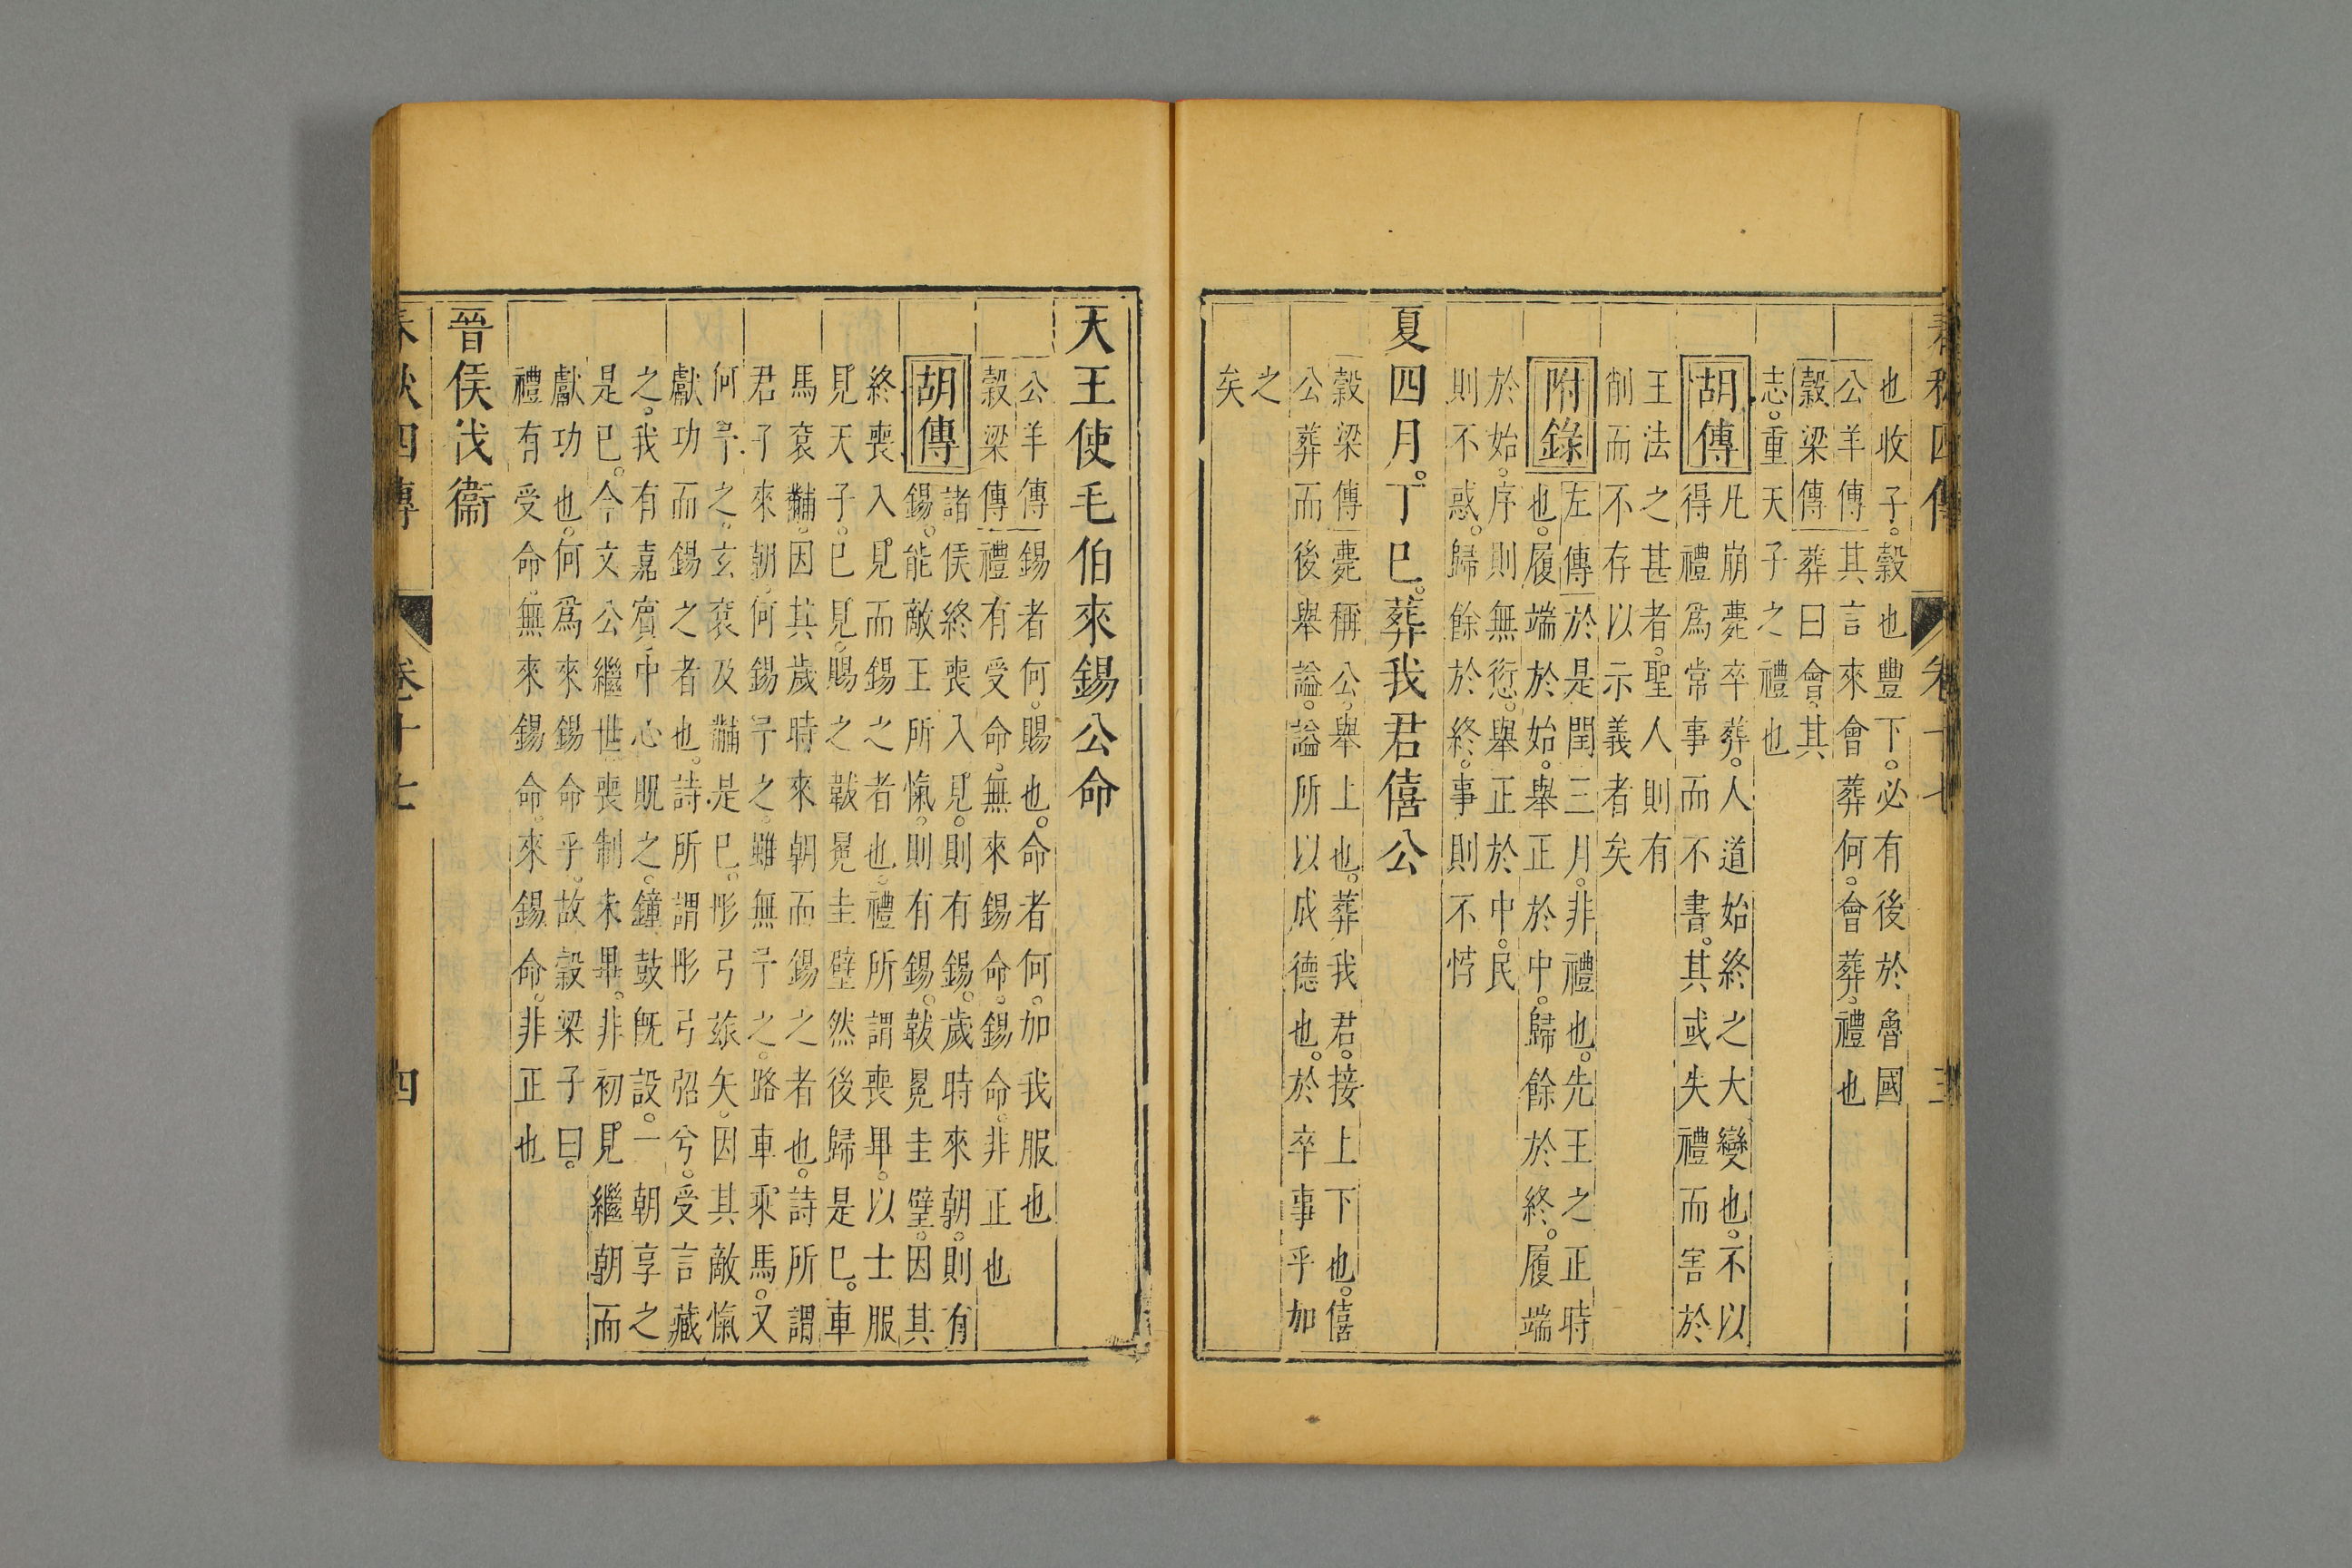 春秋四傳 卷十七 三
也收子。穀也豐下。必有後於魯國
公羊傳其言來會葬何。會葬。禮也
穀梁傳葬曰會。其
志。重天子之禮也
胡傳
凡崩薨卒葬。人道始終之大變也。不以
得禮爲常事而不書。其或失禮而害於
王法之甚者。聖人則有
削而不存以示義者矣
附錄
左傳於是閏三月。非禮也。先王之正時
也。履端於始。舉正於中。歸餘於終。履端
於始。序則無愆。舉正於中。民
則不惑。歸餘於終。事則不悖
夏四月。丁巳。葬我君僖公
穀梁傳薨稱公。舉上也。葬我君。接上下也。僖
公葬而後舉謚。謚所以成德也。於卒事乎加
之
矣
天王使毛伯來錫公命
公羊傳錫者何。賜也。命者何。加我服也
穀梁傳禮有受命。無來錫命。錫命。非正也
胡傳
諸侯終喪入見。則有錫。歲時來朝。則有
錫。能敵王所愾。則有錫。韍冕圭璧。因其
終喪入見而錫之者也。禮所謂喪畢。以士服
見天子。已見。賜之韍冕圭璧然後歸是已。車
馬袞黼。因其歲時來朝而錫之者也。詩所謂
君子來朝。何錫予之。雖無予之。路車乘馬。又
何予之。玄袞及黼是已。彤弓玈矢。因其敵愾
獻功而錫之者也。詩所謂彤弓弨兮。受言藏
之。我有嘉賓。中心貺之。鐘鼓旣設。一朝享之
是已。今文公繼世喪制未畢。非初見繼朝而
獻功也。何爲來錫命乎。故穀梁子曰。
禮有受命。無來錫命。來錫命。非正也
晉侯伐衞
春秋四傳 卷十七 四